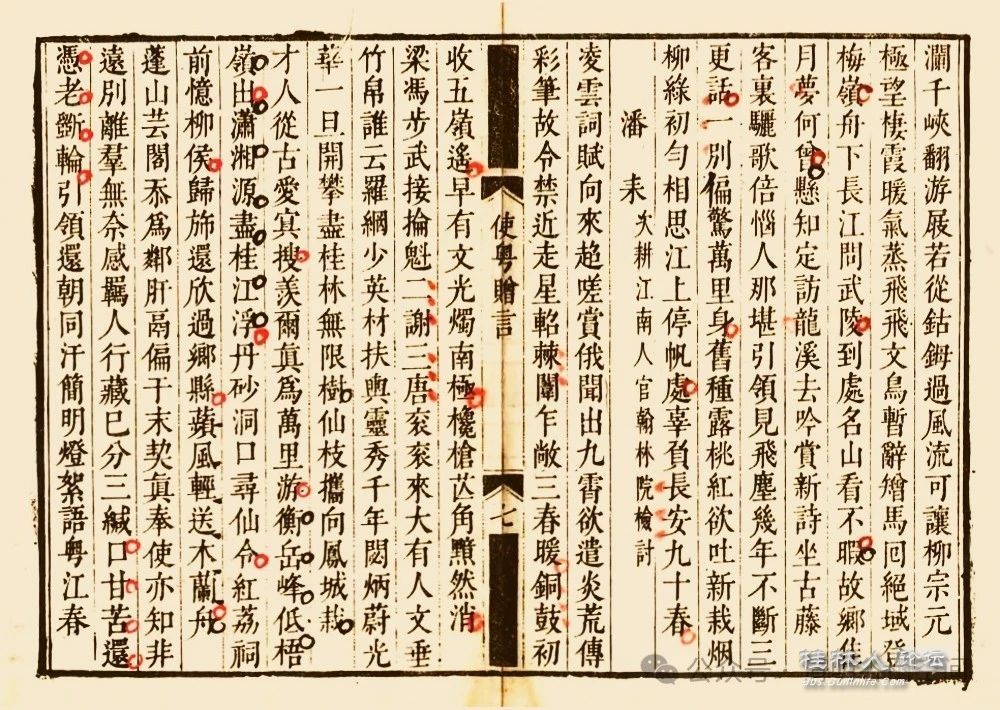 瀾千峽翻游屐若從鈷鉧過風流可讓柳宗元
極望棲霞暖氣蒸飛飛文鳥暫辭矰馬囘絕域登
梅嶺舟下長江問武陵到處名山看不暇故鄉佳
月夢何曾懸知定訪龍溪去吟賞新詩坐古藤
客裏驪歌倍惱人那堪引領見飛塵幾年不斷三
更話一別偏驚萬里身舊種露桃紅欲吐新栽烟
柳綠初勻相思江上停帆處辜負長安九十春
潘耒次耕江南人官翰林院檢討
凌雲詞賦向來超嗟賞俄聞出九霄欲遣炎荒傳
彩筆故令禁近走星軺棘闈乍敞三春暖銅鼓初
使粤贈言
七
收五嶺遙早有文光燭南極欃槍苁角黯然消
梁馮步武接掄魁二謝三唐衮衮來大有人文垂
竹帛誰云羅網少英材扶輿靈秀千年閟炳蔚光
華一旦開攀盡桂林無限樹仙枝攜向鳳城栽
才人從古愛㝠搜羨爾眞爲萬里游衡岳峰低梧
嶺出瀟湘源盡桂江浮丹砂洞口尋仙令紅荔祠
前憶柳侯歸斾還欣過鄉縣蘋風輕送木蘭舟
蓬山芸閣忝爲鄰肝鬲偏于末契眞奉使亦知非
遠別離羣無奈感羈人行藏巳分三緘口甘苦還
憑老斵輪引領還朝同汗簡明燈絮語粤江春
公众号
桂林人论坛